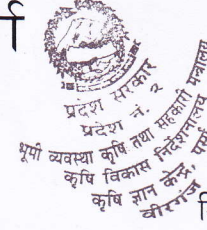 प्रदेश सरकार
प्रदेश नं. २
भूमी व्यवस्था कृषि तथा सहकारी मन्त्रालय
कृषि विकास निर्देशनालय
कृषि ज्ञान केन्द्र,
वीरगंज